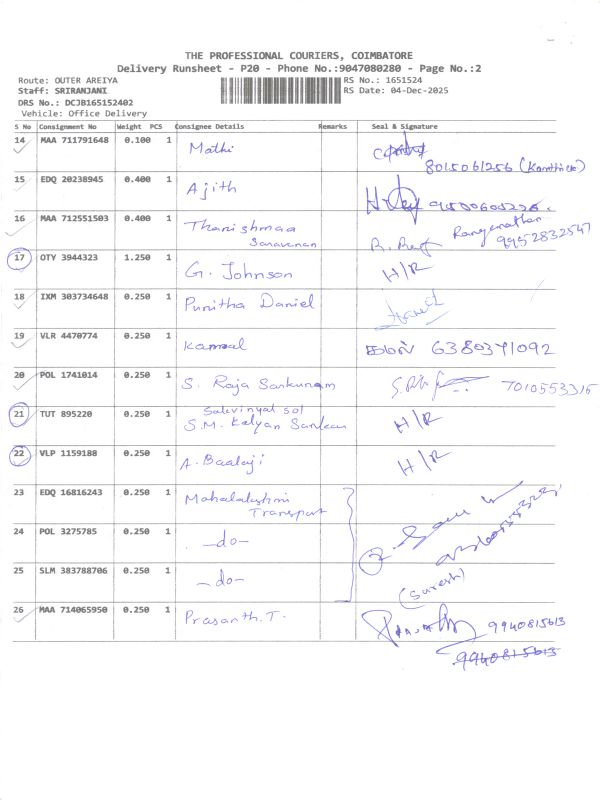 THE PROFESSIONAL COURIERS, COIMBATORE
Delivery Runsheet - P20 - Phone No.:9047080280 - Page No.:2
Route: OUTER AREIYA RS No.: 1651524
Staff: SRIRANJANI RS Date: 04-Dec-2025
DRS No.: DCJB165152402
Vehicle: Office Delivery
S No Consignment No Weight PCS Consignee Details Remarks Seal & Signature
14 MAA 711791648 0.100 1 Mathi
8015061256 (Kanthi
15 EDQ 20238945 0.400 1 Ajith
16 MAA 712551503 0.400 1 Thanishmaa Ranganathan
Saravanan 9952832547
17 OTY 3944323 1.250 1 G. Johnson H/R
18 IXM 303734648 0.250 1 Punitha Daniel
19 VLR 4470774 0.250 1 Kamal 6380371092
20 POL 1741014 0.250 1 S. Raja Sankunam 7010553315
21 TUT 895220 0.250 1 sol H/R
S.M. Kalyan
22 VLP 1159188 0.250 1 A. Baalaji H/R
23 EDQ 16816243 0.250 1 Mahalakshmi
Transport
24 POL 3275785 0.250 1 -do-
25 SLM 383788706 0.250 1 -do-
(Suresh)
26 MAA 714065950 0.250 1 Prasanth. T. 9940815613
9940815613